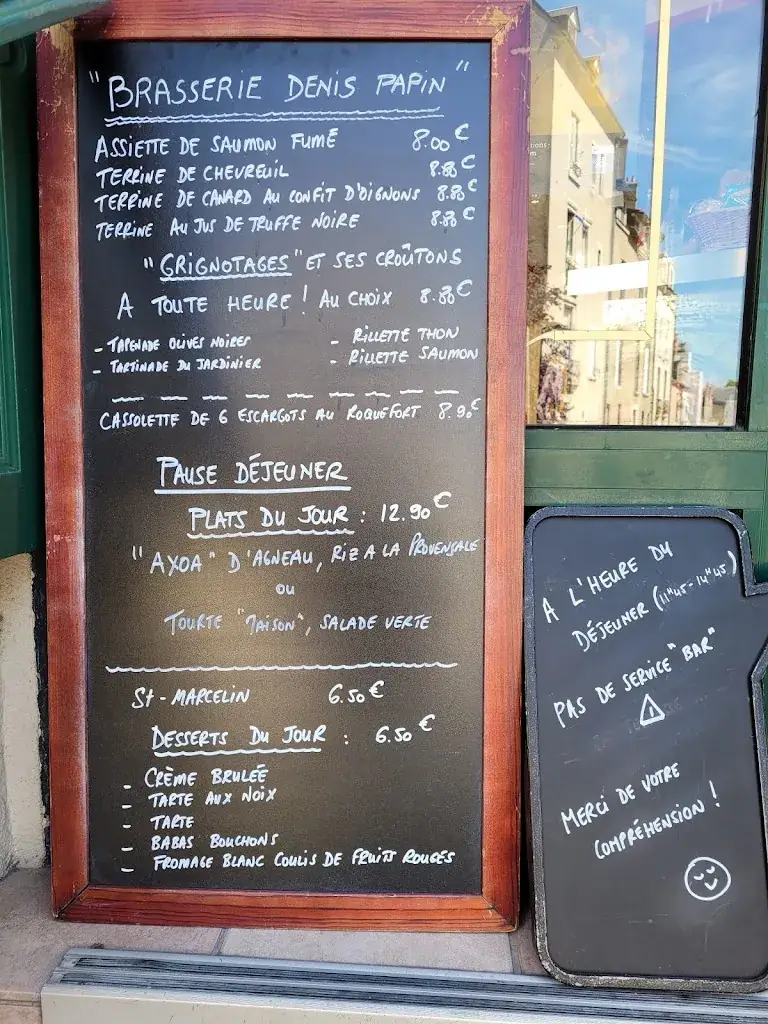 "BRASSERIE DENIS PAPIN"
ASSIETTE DE SAUMON FUMÉ 8.00€
TERRINE DE CHEVREUIL 8.80€
TERRINE DE CANARD AU CONFIT D'OIGNONS 8.80€
TERRINE AU JUS DE TRUFFE NOIRE 8.80€
"GRIGNOTAGES" ET SES CROÛTONS
A TOUTE HEURE ! AU CHOIX 8.80€
- TAPENADE OLIVES NOIRES - RILLETTE THON
- TARTINADE DU JARDINIER - RILLETTE SAUMON
CASSOLETTE DE 6 ESCARGOTS AU ROQUEFORT 8.90€
PAUSE DÉJEUNER
PLATS DU JOUR : 12.90€
"AXOA" D'AGNEAU, RIZ A LA PROVENÇALE
OU
TOURTE "MAISON", SALADE VERTE
St-MARCELIN 6.50€
DESSERTS DU JOUR : 6.50€
- CRÈME BRULÉE
- TARTE AUX NOIX
- TARTE
- BABAS BOUCHONS
- FROMAGE BLANC COULIS DE FRUITS ROUGES
A L'HEURE DU
DÉJEUNER (11H45-14H45)
PAS DE SERVICE "BAR"
MERCI DE VOTRE
COMPRÉHENSION !